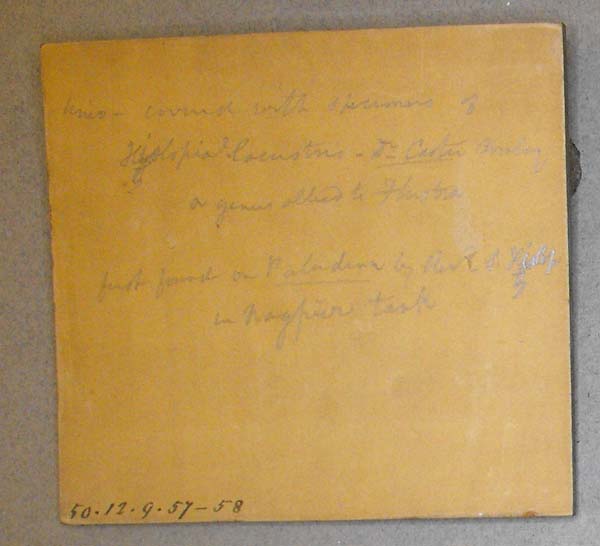 Unio - covered with specimens of
Hislopia Lacustris - Dr Carter Bombay
a genus allied to Flustra
first found on Paludina by Revd S. Hislop
in Nagpur tank
50.12.9.57-58